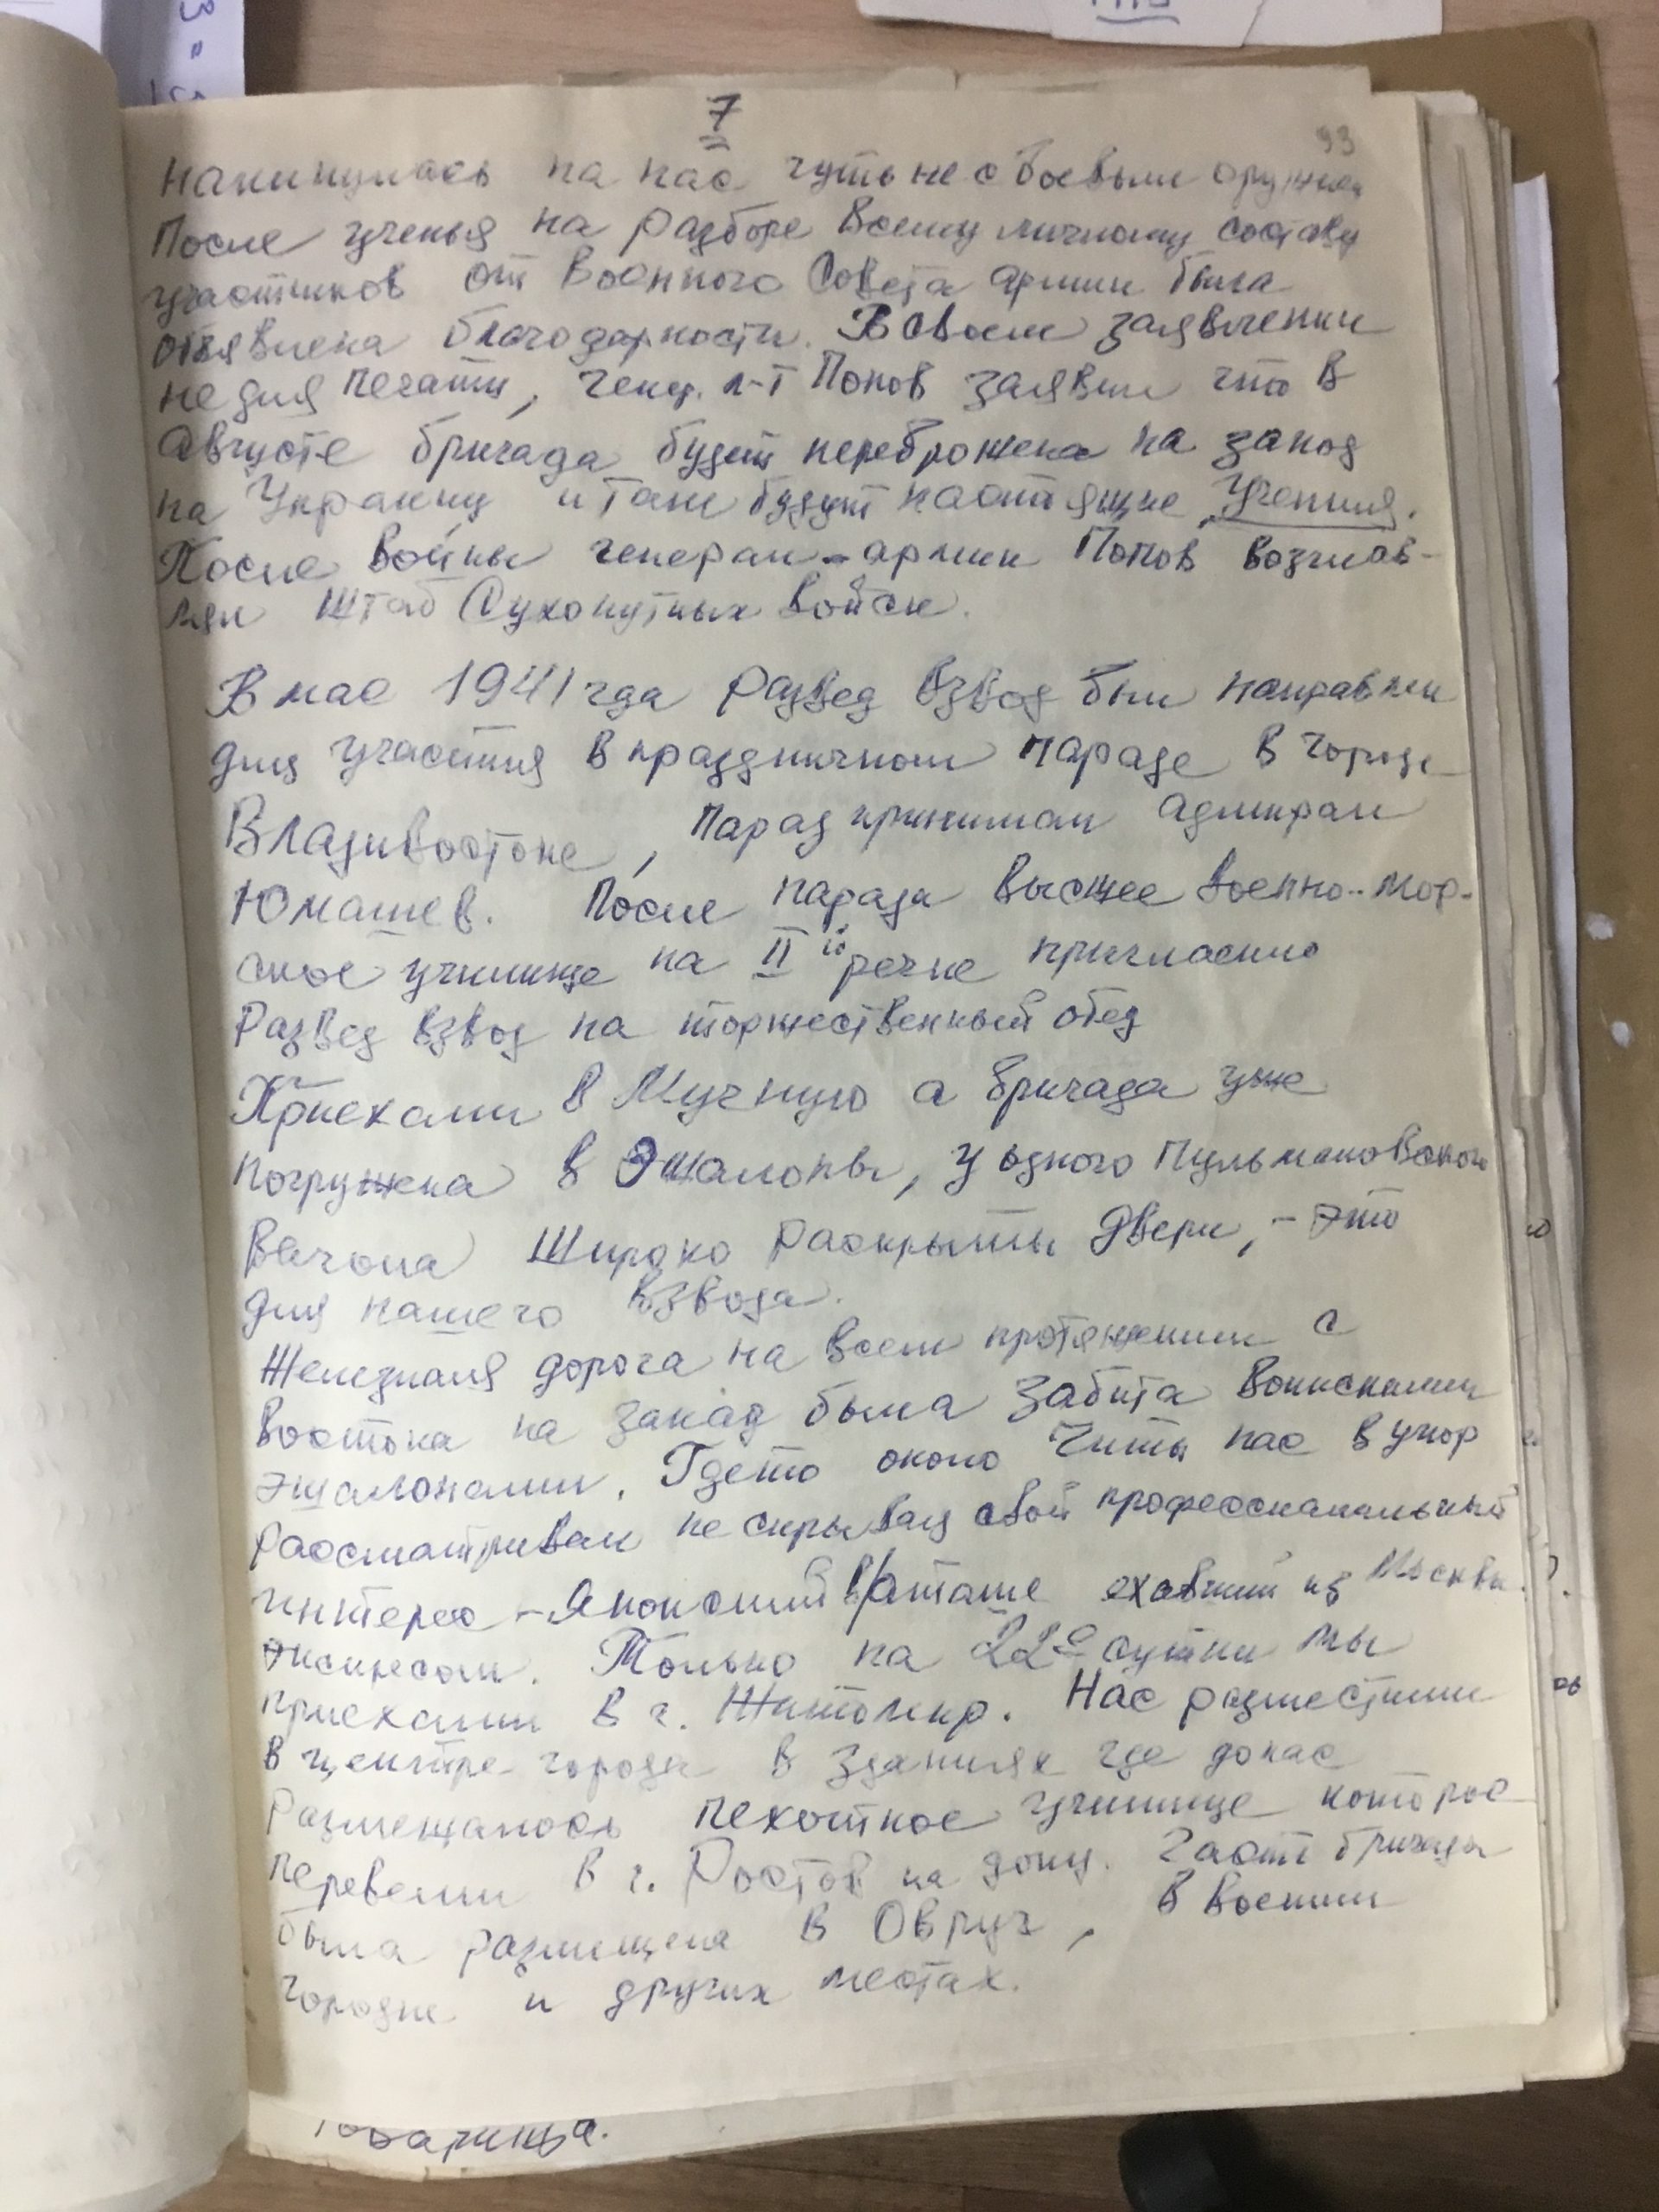 7
93
накинулась на нас чуть не с боевым оружием
После ученья на разборе всему личному составу
участников от Военного Совета армии была
объявлена благодарность. В своем заявлении
не для печати, ген. л-т Попов заявил что в
Августе бригада будет переброшена на запад
на Украину и там будут настоящие учения.
После войны генерал-армии Попов возглав-
лял штаб Сухопутных войск.
В мае 1941 года развед взвод был направлен
для участия в праздничном параде в городе
Владивостоке, парад принимал адмирал
Юмашев. После парада высшее военно-мор-
ское училище на II ой речке пригласило
Развед взвод на торжественный обед
Приехали в Мучную а бригада уже
погружена в Эшалоны, у одного Пульмановского
вагона широко раскрыты двери, - это
для нашего взвода.
Железная дорога на всем протяжении с
востока на запад была забита воинскими
эшалонами. Где то около Читы нас в упор
рассматривал не скрывая свой профессиональный
интерес - Японский в/аташе ехавший из Москвы
экспресом. Только на 22е сутки мы
приехали в г. Житомир. Нас разместили
в центре города в зданиях где до нас
размещалось пехотное училище которое
перевели в г. Ростов на дону. Часть бригады
была размещена в Овруч, в военном
городке и других местах.
товарища.